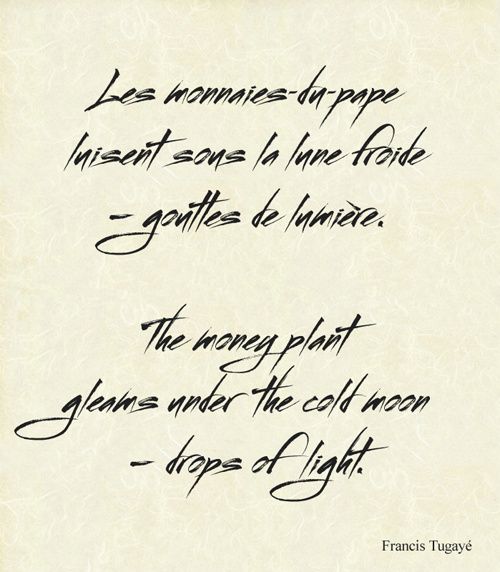 Les monnaies-du-pape
luisent sous la lune froide
– gouttes de lumière.
The money plant
gleams under the cold moon
– drops of light.
Francis Tugayé